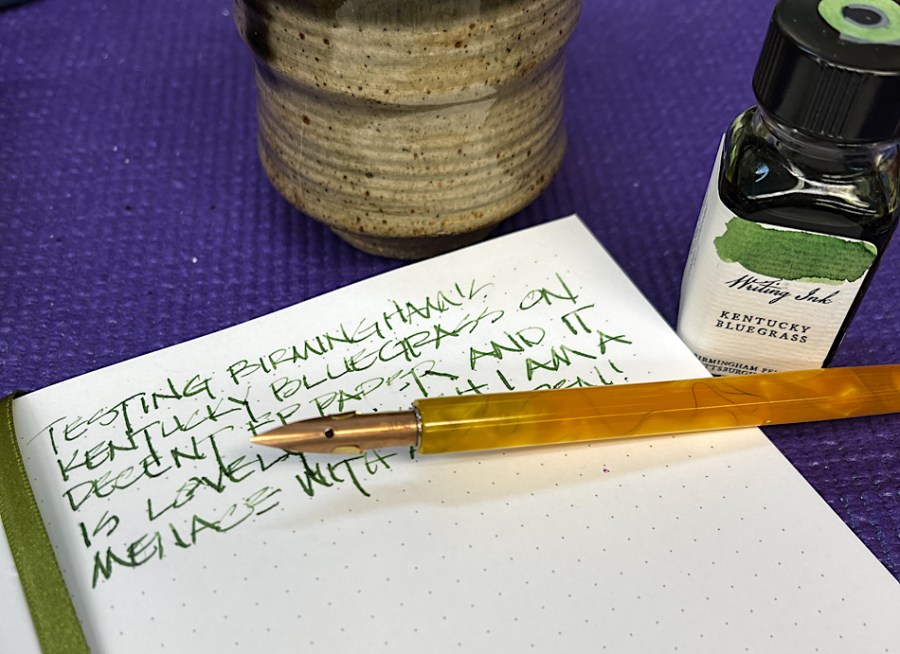 TESTING BIRMINGHAM'S
KENTUCKY BLUEGRASS ON
DECENT FP PAPER AND IT
IS LOVELY I AM A
MENACE WITH
Writing Ink
KENTUCKY
BLUEGRASS
BIRMINGHAM PEN
PITTSBURGH